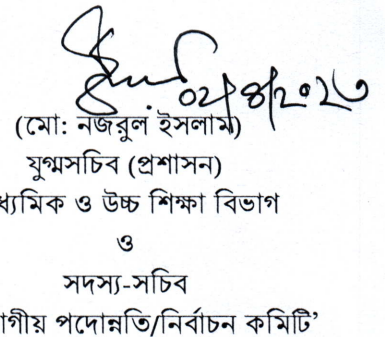 ০২/৪/২০২৩
(মো: নজরুল ইসলাম)
যুগ্মসচিব (প্রশাসন)
ধ্যমিক ও উচ্চ শিক্ষা বিভাগ
ও
সদস্য-সচিব
াগীয় পদোন্নতি/নির্বাচন কমিটি’